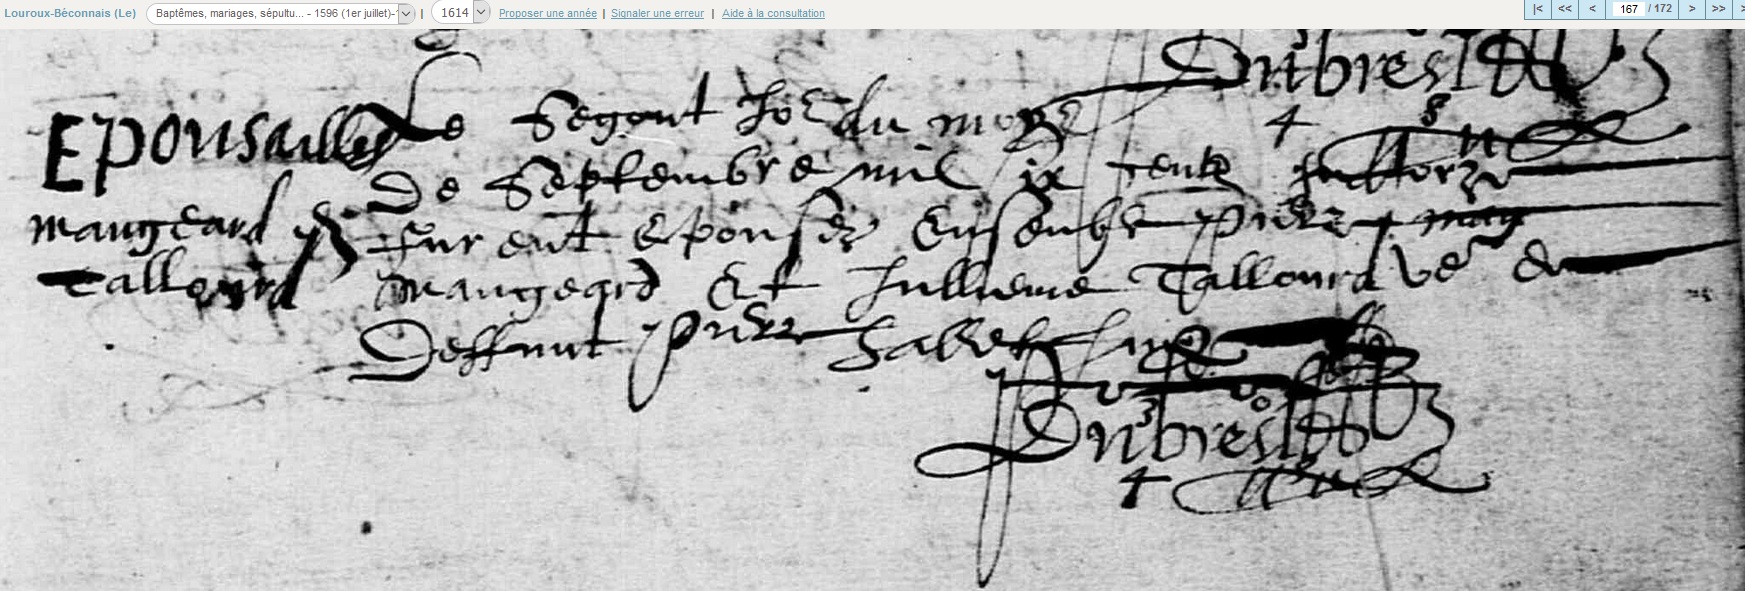 Louroux-Béconnais (Le) Baptêmes, mariages, sépultu... - 1596 (1er juillet)- | 1614 Proposer une année | Signaler une erreur | Aide à la consultation |< << < 167 / 172 > >>
Dubreil
Epousailles Le Segont Jor du moys
de Septembre mil six cents quatorze
maugeard & furent Epousez Ensenble pierre mau
Tallourd maugeard Et Jullienne Tallourd ve de
Deffunt pierre
Dubreil